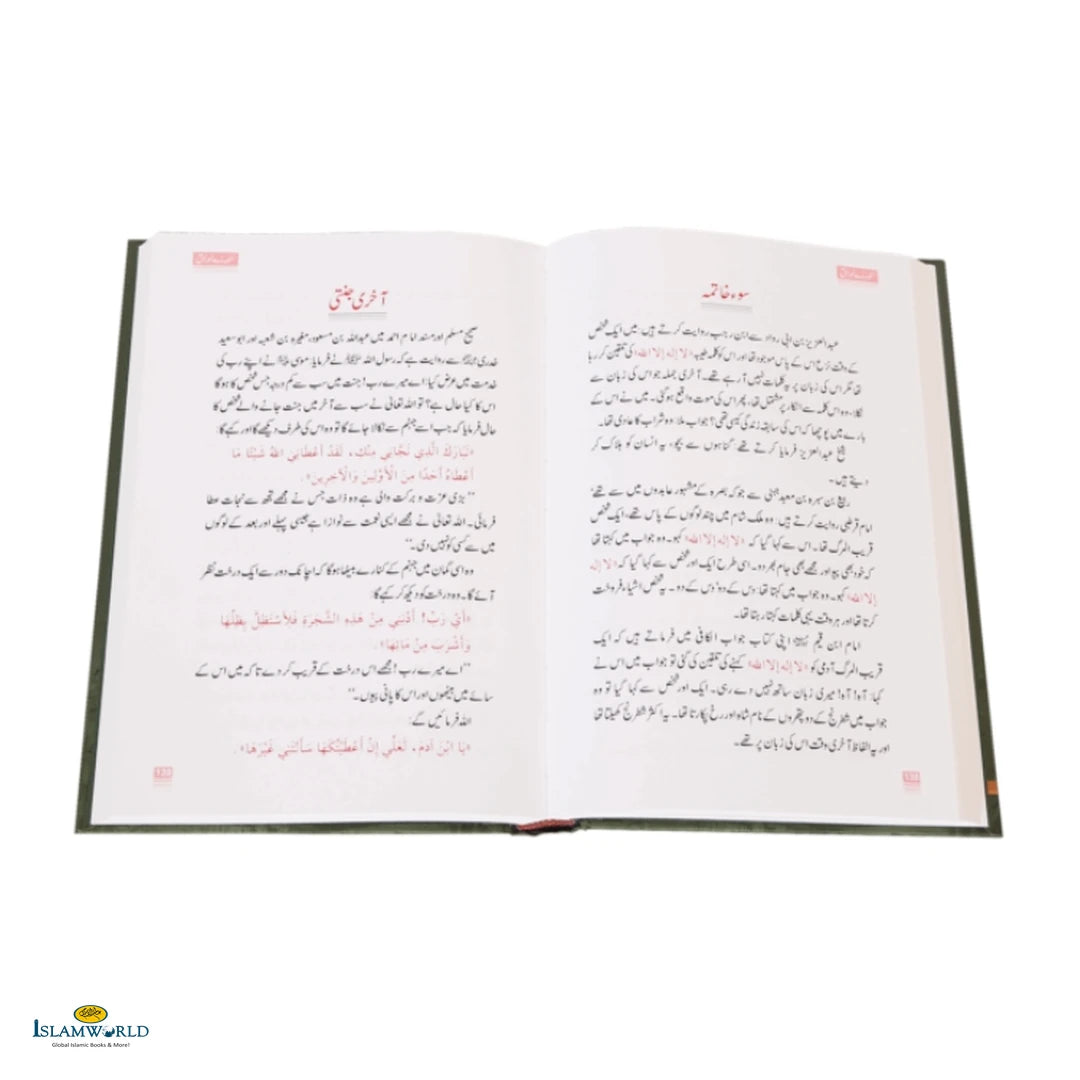 سوء خاتمہ
عبدالعزیز بن ابی رواد سے ابن رجب روایت کرتے ہیں: میں ایک شخص
کے وقت نزع اس کے پاس موجود تھا اور اس کو کلمہ طیبہ «لا إله إلا الله» کی تلقین کر رہا
تھا مگر اس کی زبان پر یہ کلمات نہیں آ رہے تھے۔ آخری جملہ جو اس کی زبان سے
نکلا، وہ اس کلمہ سے انکار پر مشتمل تھا، پھر اس کی موت واقع ہوگئی۔ میں نے اس کے
بارے میں پوچھا کہ اس کی سابقہ زندگی کیسی تھی؟ جواب ملا: وہ شراب کا عادی تھا۔
شیخ عبدالعزیز فرمایا کرتے تھے: گناہوں سے بچو، یہ انسان کو ہلاک کر
دیتے ہیں۔
ربیع بن سبرہ بن معبد جہنی سے جو کہ بصرہ کے مشہور عابدوں میں سے تھے
امام قرطبی روایت کرتے ہیں: وہ ملک شام میں چند لوگوں کے پاس تھے، ایک شخص
قریب المرگ تھا۔ اس سے کہا گیا کہ «لا إله إلا الله» کہو۔ وہ جواب میں کہتا تھا
کہ خود بھی پیو اور مجھے بھی جام بھر دو۔ اسی طرح ایک اور شخص سے کہا گیا کہ «لا إله
إلا الله» کہو۔ وہ جواب میں کہتا تھا: دس کے دو، دس کے دو۔ یہ شخص اشیاء فروخت
کرتا تھا اور ہر وقت یہی کلمات کہتا رہتا تھا۔
امام ابن قیم اپنی کتاب جواب الکافی میں فرماتے ہیں کہ ایک
قریب المرگ آدمی کو «لا إله إلا الله» کہنے کی تلقین کی گئی تو جواب میں اس نے
کہا: آہ! آہ! میری زبان ساتھ نہیں دے رہی۔ ایک اور شخص سے کہا گیا تو وہ
جواب میں شطرنج کے دو پتھروں کے نام شاہ اور رخ پکارتا تھا۔ یہ اکثر شطرنج کھیلتا تھا
اور یہ الفاظ آخری وقت اس کی زبان پر تھے۔
138
آخری جنتی
صحیح مسلم اور مسند امام احمد میں عبداللہ بن مسعود، مغیرہ بن شعبہ اور ابو سعید
خدری سے روایت ہے کہ رسول اللہ ﷺ نے فرمایا: موسیٰ نے اپنے رب کی
خدمت میں عرض کیا: اے میرے رب! جنت میں سب سے کم درجہ جس شخص کا ہوگا
اس کا کیا حال ہے؟ تو اللہ تعالیٰ نے سب سے آخر میں جنت جانے والے شخص کا
حال فرمایا کہ جب اسے جہنم سے نکالا جائے گا تو وہ اس کی طرف دیکھے گا اور کہے گا:
«تَبَارَكَ الَّذِي نَجَّانِي مِنْكِ، لَقَدْ أَعْطَانِي اللهُ شَيْئًا مَا
أَعْطَاهُ أَحَدًا مِنَ الْأَوَّلِينَ وَالْآخِرِينَ».
’’بڑی عزت و برکت والی ہے وہ ذات جس نے مجھے تجھ سے نجات عطا
فرمائی۔ اللہ تعالیٰ نے مجھے ایسی نعمت سے نوازا ہے جیسی پہلے اور بعد کے لوگوں
میں سے کسی کو نہیں دی۔‘‘
وہ اسی گمان میں جہنم کے کنارے بیٹھا ہوگا کہ اچانک دور سے ایک درخت نظر
آئے گا۔ وہ درخت کو دیکھ کر کہے گا:
«أَيْ رَبِّ! أَدْنِنِي مِنْ هَذِهِ الشَّجَرَةِ فَلِأَسْتَظِلَّ بِظِلِّهَا
وَأَشْرَبَ مِنْ مَائِهَا».
’’اے میرے رب! مجھے اس درخت کے قریب کر دے تاکہ میں اس کے
سائے میں بیٹھوں اور اس کا پانی پیوں۔‘‘
اللہ فرمائیں گے:
«يَا ابْنَ آدَمَ، لَعَلِّي إِنْ أَعْطَيْتُكَهَا سَأَلْتَنِي غَيْرَهَا».
ISLAMWORLD
Global Islamic Books & More!